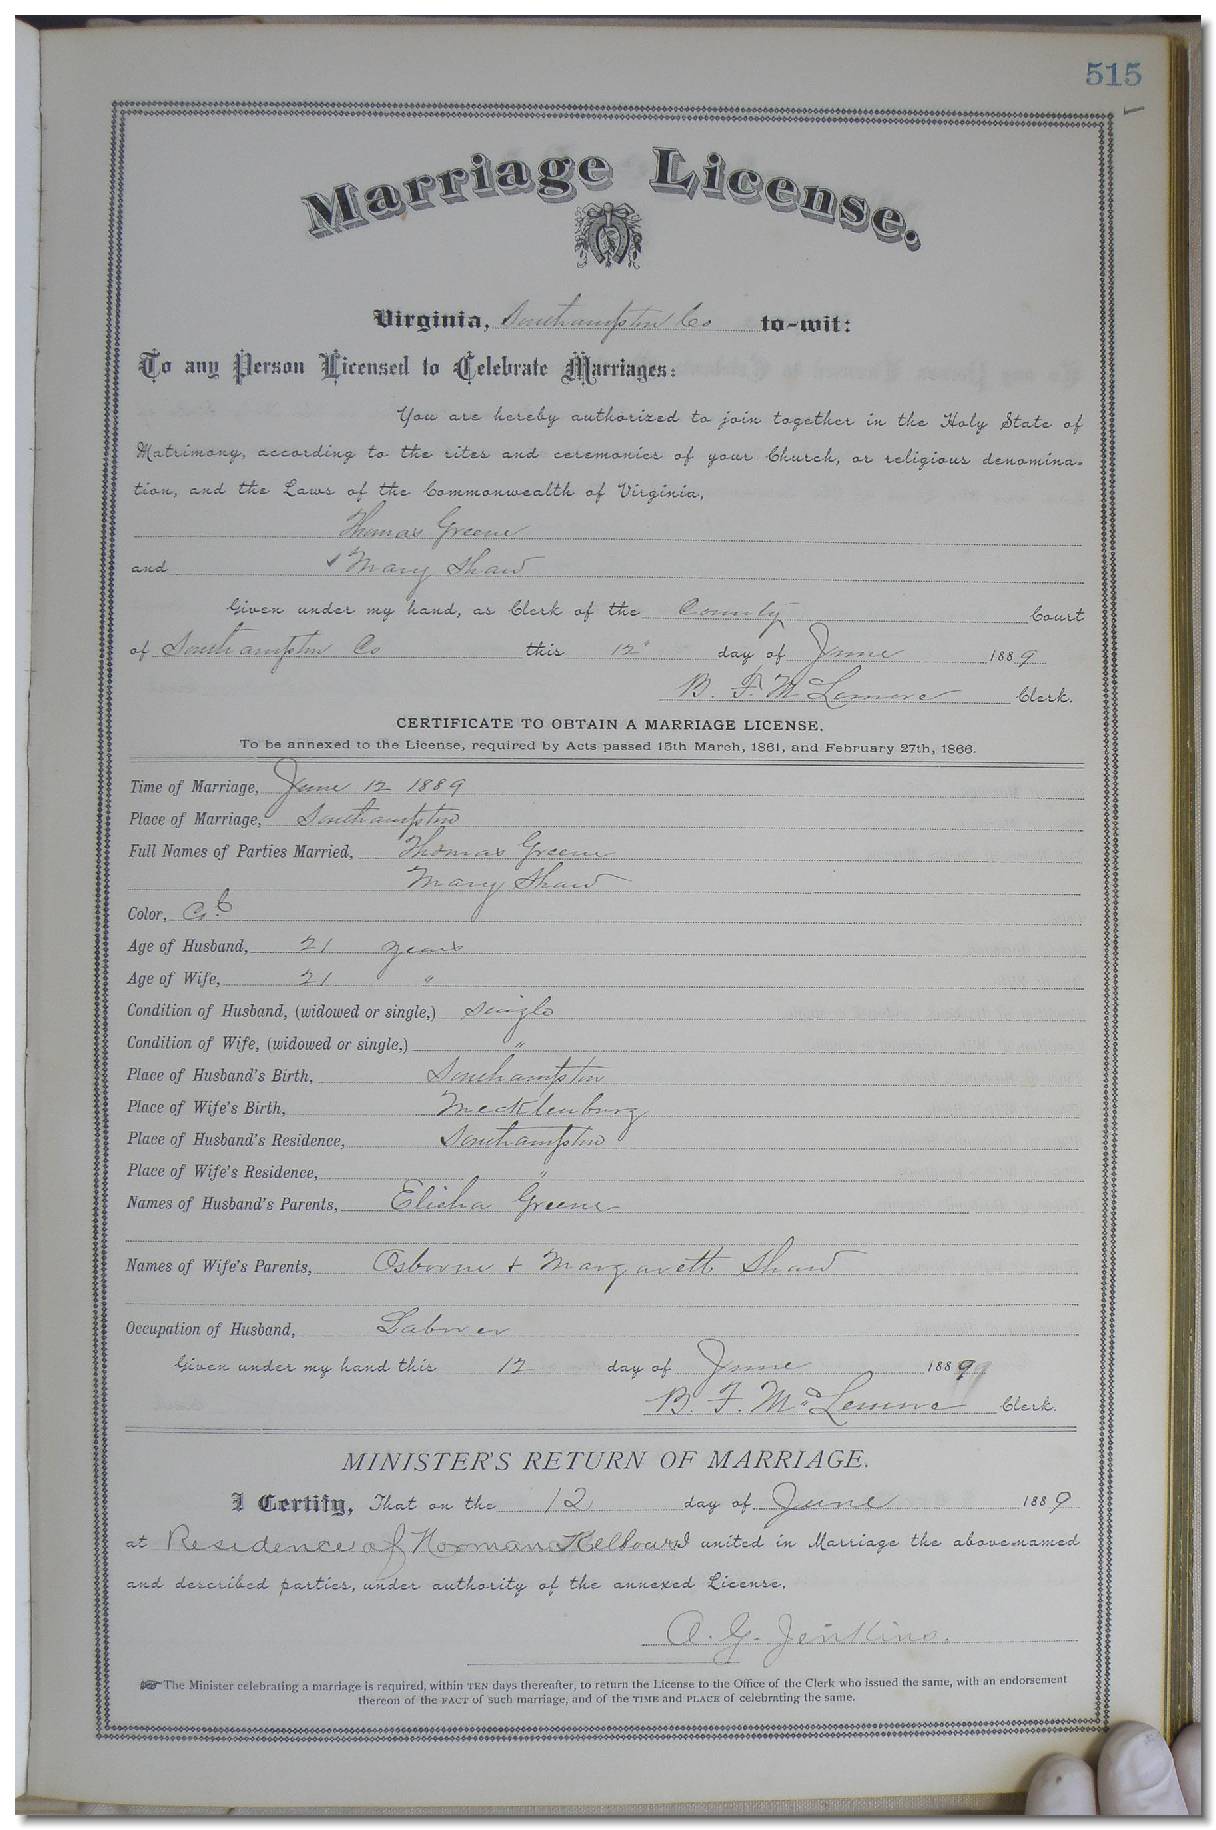 515
Marriage License.
Virginia, Southampton Co to-wit:
To any Person Licensed to Celebrate Marriages:
You are hereby authorized to join together in the Holy State of
Matrimony, according to the rites and ceremonies of your Church, or religious denomina-
tion, and the Laws of the Commonwealth of Virginia,
Thomas Greene
and Mary Shaw
Given under my hand, as Clerk of the County Court
of Southampton Co this 12" day of June 1889
B. F. McLemore Clerk.
CERTIFICATE TO OBTAIN A MARRIAGE LICENSE.
To be annexed to the License, required by Acts passed 15th March, 1861, and February 27th, 1866.
Time of Marriage, June 12 1889
Place of Marriage, Southampton
Full Names of Parties Married, Thomas Greene
Mary Shaw
Color,
Age of Husband, 21 years
Age of Wife, 21 "
Condition of Husband, (widowed or single,) single
Condition of Wife, (widowed or single,) "
Place of Husband's Birth, Southampton
Place of Wife's Birth, Mecklenburg
Place of Husband's Residence, Southampton
Place of Wife's Residence, "
Names of Husband's Parents, Elisha Greene
Names of Wife's Parents, Osborne + Margarett Shaw
Occupation of Husband, Laborer
Given under my hand this 12 day of June 1889
B. F. McLemore Clerk.
MINISTER'S RETURN OF MARRIAGE.
I Certify, That on the 12 day of June 1889
at Residence of Norman I united in Marriage the above-named
and described parties, under authority of the annexed License.
A. G. Jenkins.
The Minister celebrating a marriage is required, within TEN days thereafter, to return the License to the Office of the Clerk who issued the same, with an endorsement
thereon of the FACT of such marriage, and of the TIME and PLACE of celebrating the same.